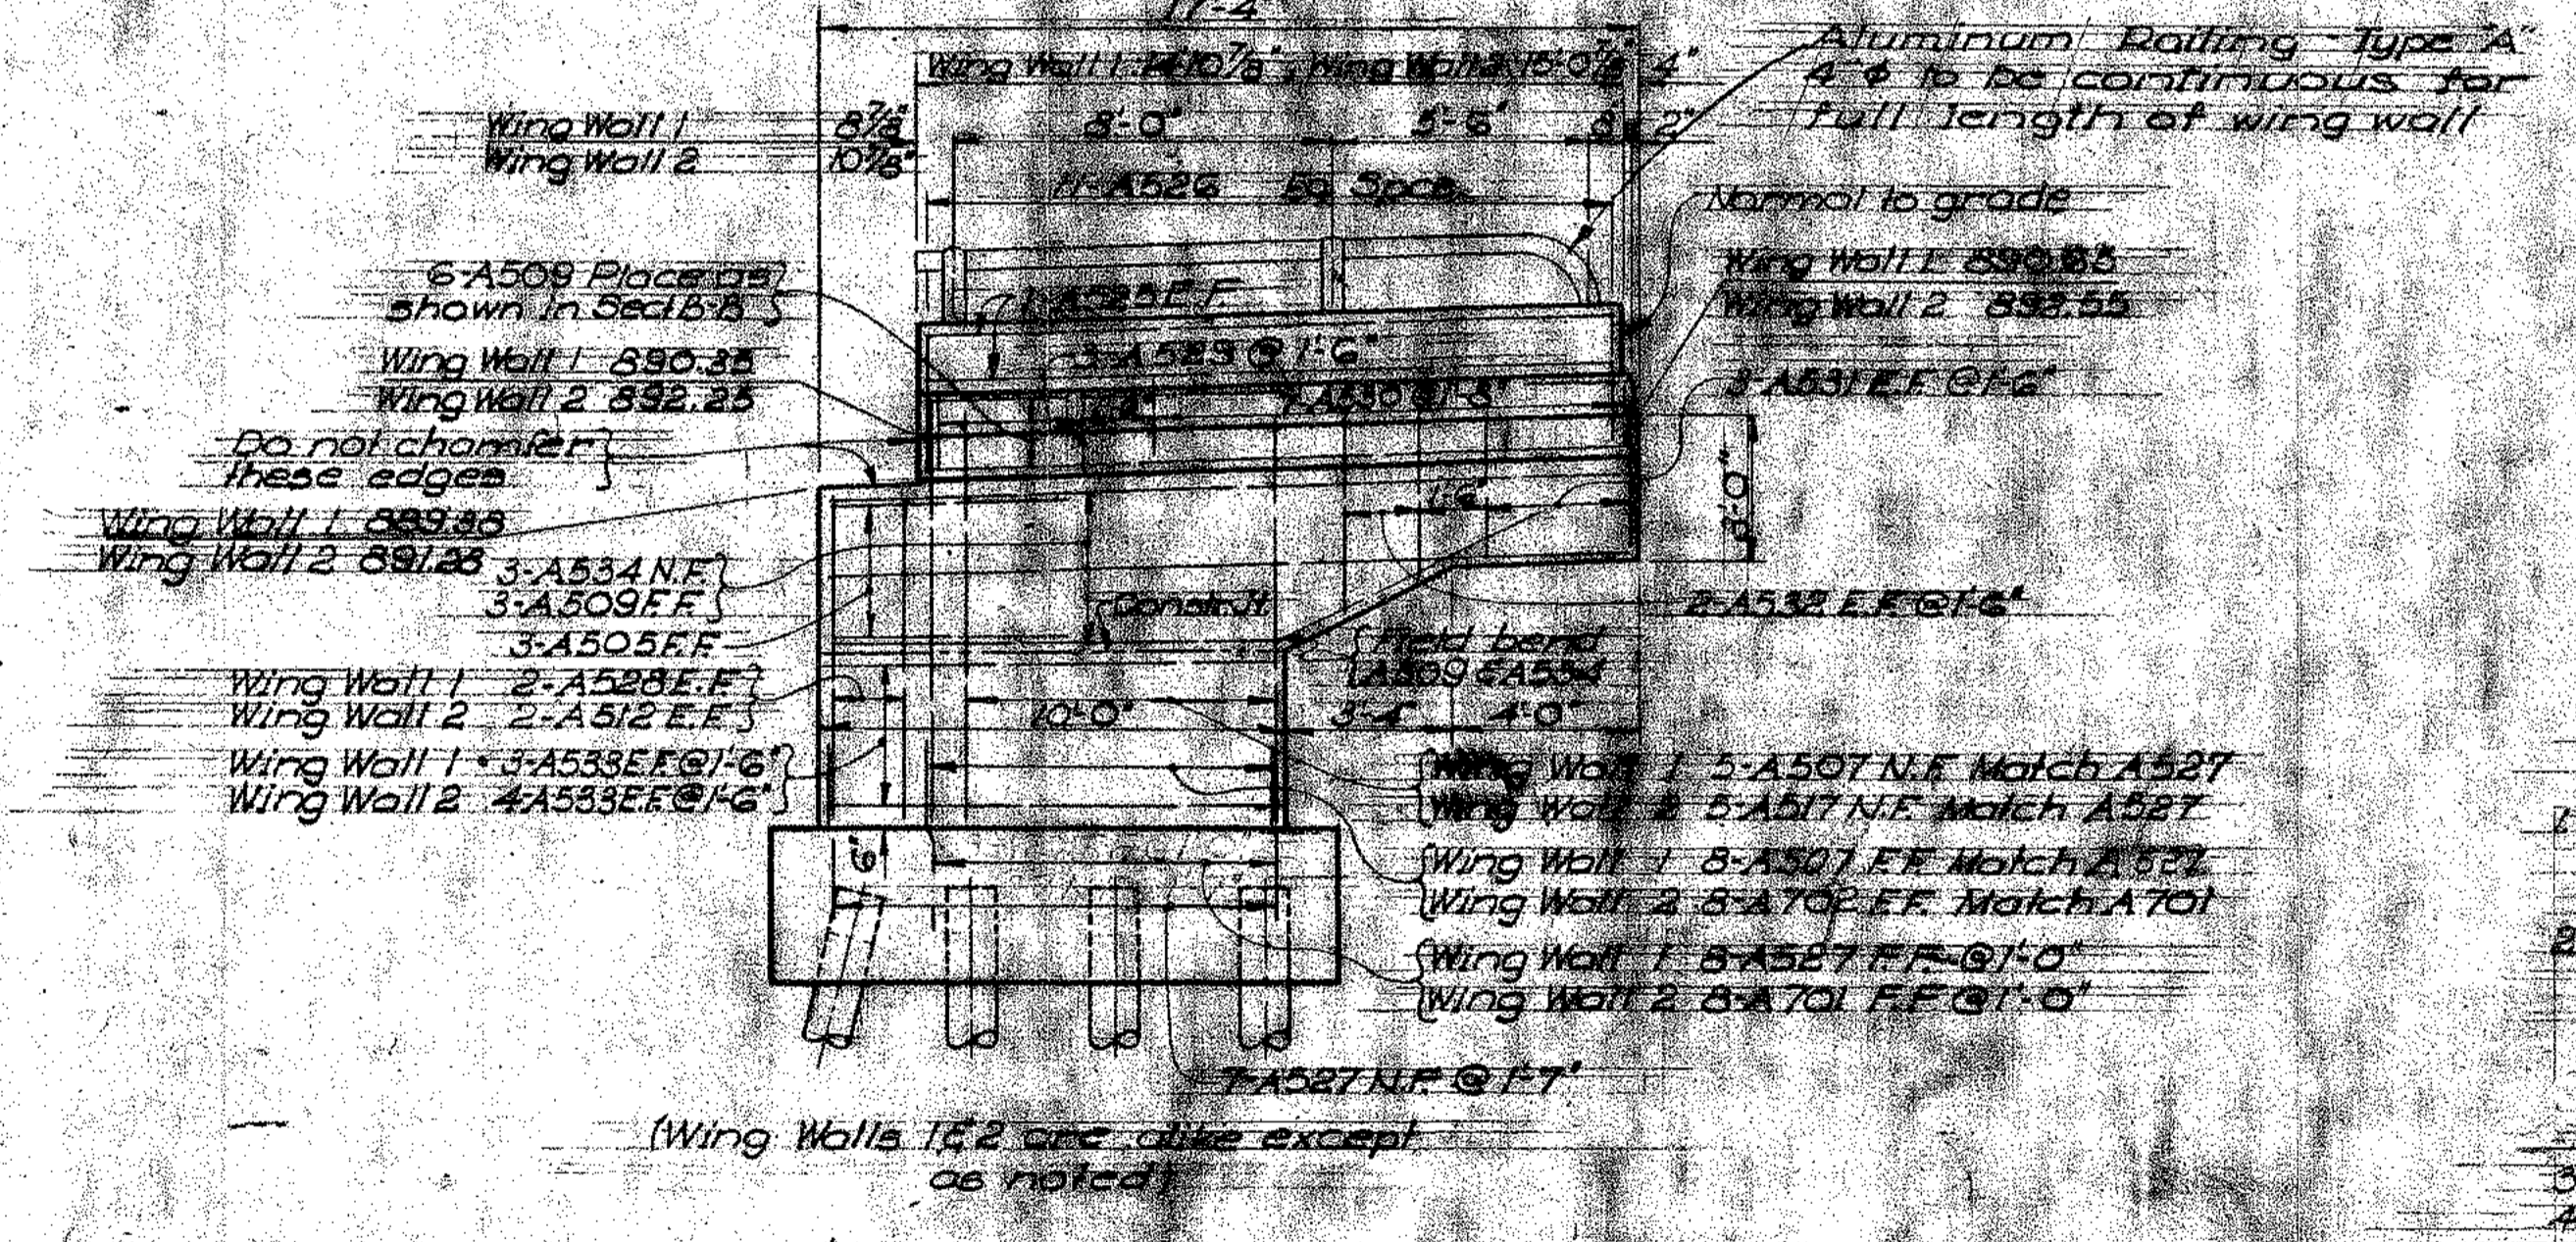 17'-4"
Aluminum Railing Type "A"
4"φ to be continuous for
full length of wing wall
Wing Wall 1 8⅞"
Wing Wall 2 10⅞"
8'-0" 5'-6" 2"
11-A526 Eq. Spcs.
Normal to grade
6-A509 Place as
shown in Sect. B-B
1-A525 E.F.
Wing Wall 1
Wing Wall 2 892.55
3-A529 @ 1'-6"
Wing Wall 1 890.25
Wing Wall 2 892.25
3-A531 E.F. @ 1'-6"
Do not chamfer
these edges
3'-0"
1'-6"
Wing Wall 1
Wing Wall 2
3-A534 N.F.
3-A509 F.F.
3-A505 F.F.
Constr. Jt.
2-A532 E.F. @ 1'-6"
Field bend
A509 & A534
Wing Wall 1 2-A528 E.F.
Wing Wall 2 2-A512 E.F.
10'-0" 3'-4" 4'-0"
Wing Wall 1 3-A533 E.F. @ 1'-6"
Wing Wall 2 4-A533 E.F. @ 1'-6"
Wing Wall 1 5-A507 N.F. Match A527
Wing Wall 2 5-A517 N.F. Match A527
6"
Wing Wall 1 8-A507 F.F. Match A527
Wing Wall 2 8-A702 F.F. Match A701
Wing Wall 1 8-A527 F.F. @ 1'-0"
Wing Wall 2 8-A701 F.F. @ 1'-0"
7-A527 N.F. @ 1'-7"
(Wing Walls 1 & 2 are alike except
as noted)